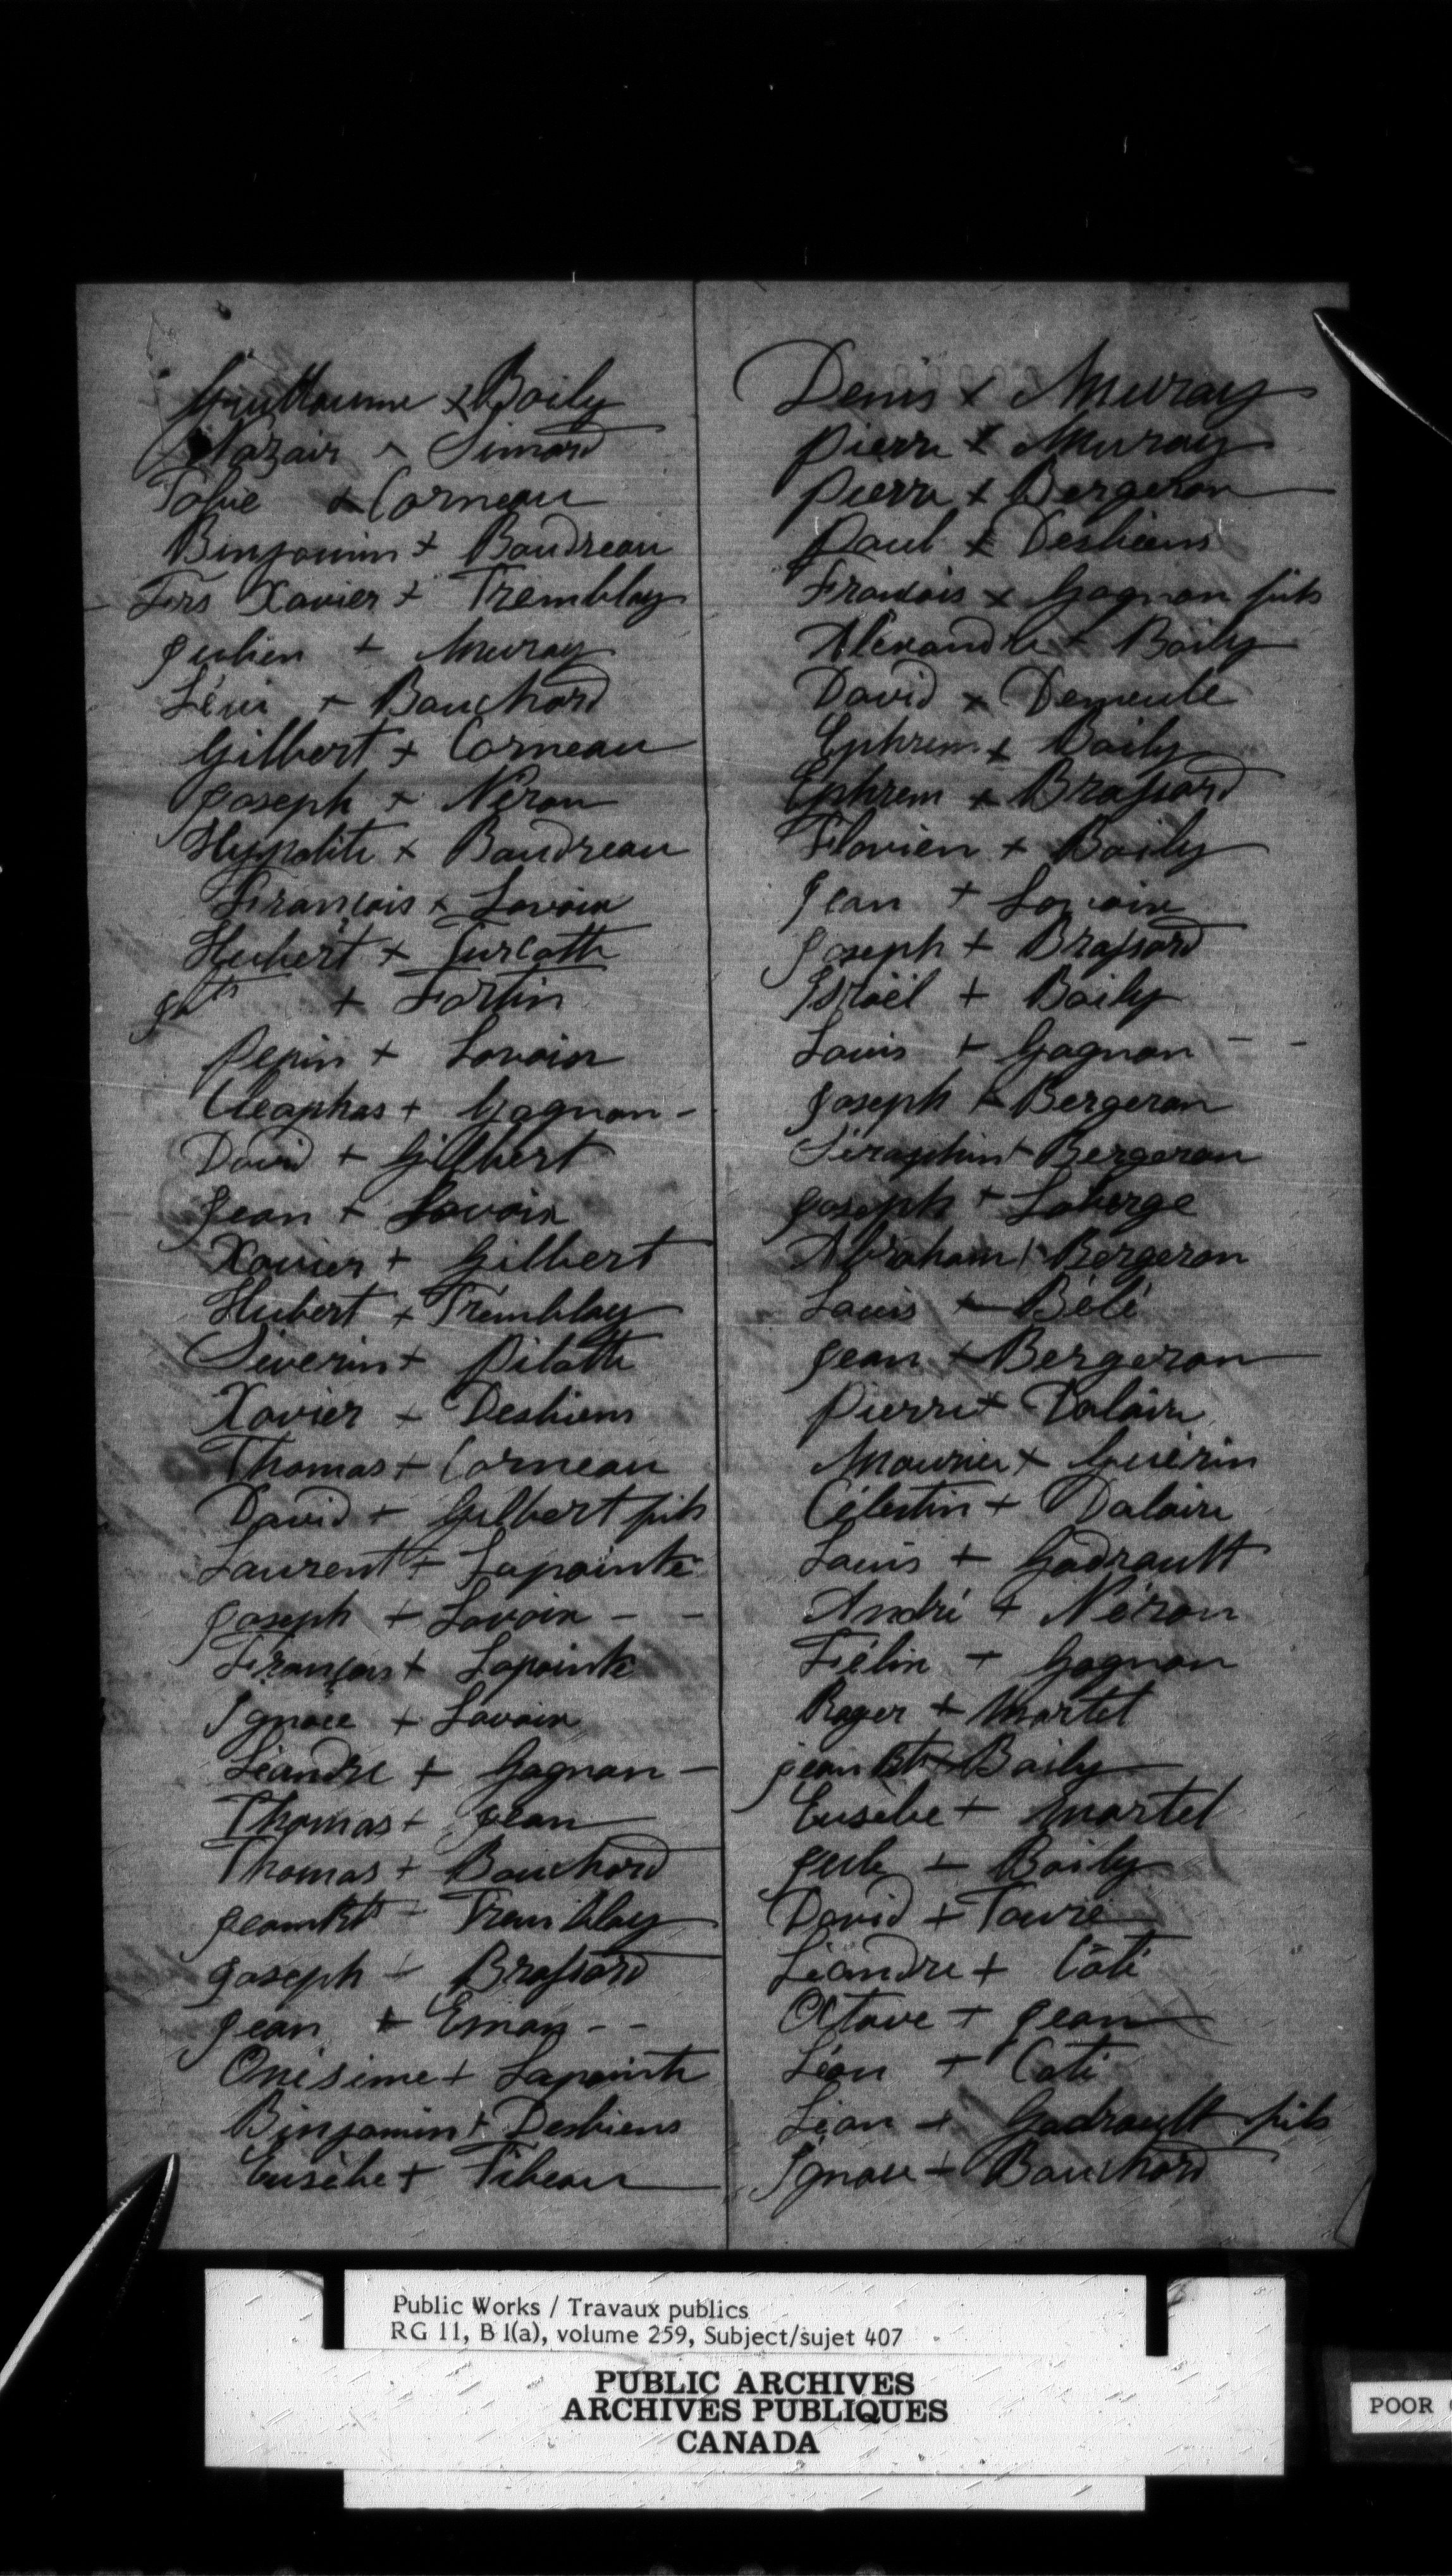 Guillaume x Boily
Nazair x Simard
Tofue x Corneau
Binjamin x Boudreau
Frs Xavier x Tremblay
Julien + Muray
Lévi + Bouchard
Gilbert x Corneau
Joseph x Néron
Hyppolite x Boudreau
François x Lavoix
Hubert x Turcotte
+ Fortin
Pepin + Lavoix
Cleophas + Gagnon -
David + Gilbert
Jean + Lavoix
Xavier + Gilbert
Hubert + Trémblay
Séverin + Pilotte
Xavier + Desbiens
Thomas + Corneau
David + Gilbert fils
Laurent + Lapointe
Joseph + Lavoix - -
François + Lapointe
Ignace + Lavoix
Léandre + Gagnon -
Thomas + Jean
Thomas + Bouchard
JeanBte + Tremblay
Joseph + Brassard
Jean + Emay - -
Onésime + Lapointe
Binjamin + Desbiens
Eusèbe + Fibeau
Denis x Muray
Pierre x Muray
Pierre x Bergeron
Paul x Desbiens
François x Gagnon fils
Alexandre + Boily
David x Demeule
Ephrem x Boily
Ephrem x Brassard
Flavien x Boily
Jean + Lavoix
Joseph + Brassard
Israël + Boily
Louis + Gagnon - -
Joseph + Bergeron
Séraphin + Bergeron
Joseph + Laberge
Abraham + Bergeron
Louis + Bélé
Jean + Bergeron
Pierre + Dalaire
Maurice x Guérin
Célestin + Dalaire
Louis + Gadrault
André + Néron
Félin + Gagnon
Roger + Martel
jean Bte + Boily
Eusèbe + Martel
Jule + Boily
David + Touré
Léandre + Côté
Octave + Jean
Léon + Coté
Léon + Gadrault fils
Ignace + Bouchard
Public Works / Travaux publics
RG 11, B 1(a), volume 259, Subject/sujet 407
PUBLIC ARCHIVES
ARCHIVES PUBLIQUES
CANADA
POOR